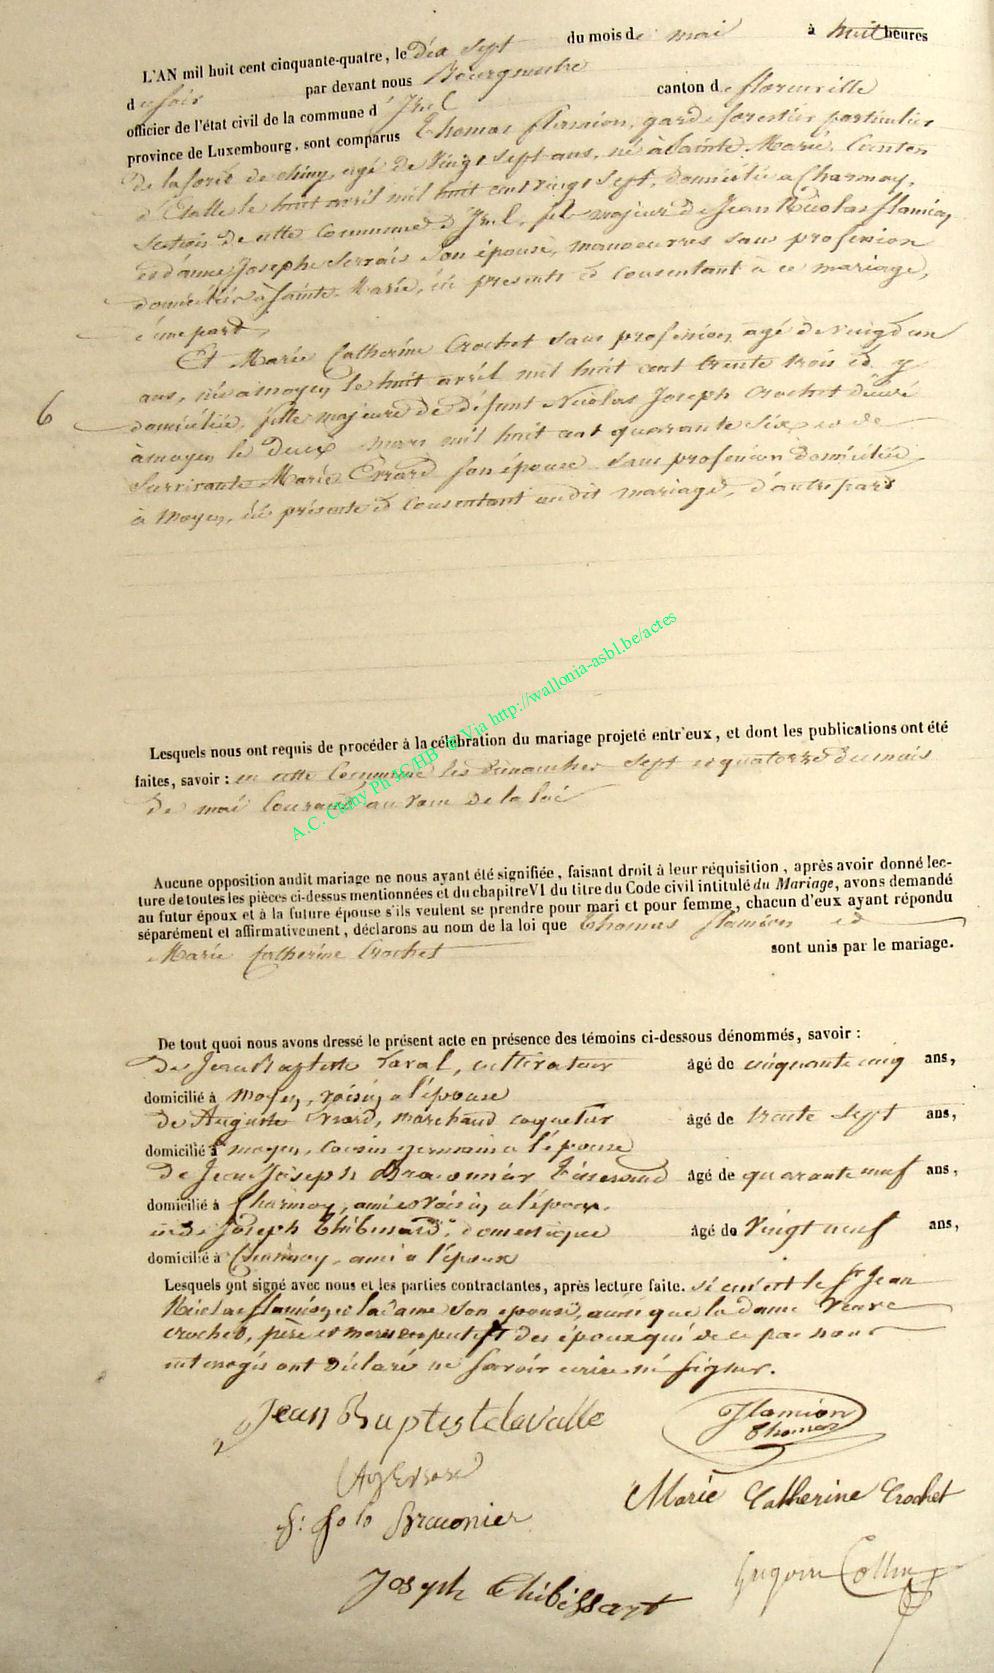 L'AN mil huit cent cinquante-quatre, le dix sept du mois de mai à huit heures
du soir par devant nous Bourgmestre
officier de l'état civil de la commune d'Izel canton de florenville
province de Luxembourg, sont comparus Thomas flamion, garde forestier particulier
de la forêt de chiny, agé de vingt sept ans, né à Sainte Marie, Canton
d'Etalle le huit avril mil huit cent vingt sept, domicilié a Charmoy,
section de cette commune d'Izel, fils majeur de Jean Nicolas flamion
et d'anne Josephe Servais son épouse, manoeuvres sans profession
domiciliés à Sainte-Marie, ici presents et consentant à ce mariage,
d'une part
Et Marie Catherine Crochet sans profession, agé de vingt un
6
ans, née a moyen le huit avril mil huit cent trente trois et y
domiciliée, fille majeure de défunt Nicolas Joseph Crochet décédé
à moyen le deux mars mil huit cent quarante six, et de
survivante Marie Errard son épouse sans profession domiciliée
à Moyen, ici présente et consentant audit mariage, d'autre part
Lesquels nous ont requis de procéder à la célébration du mariage projeté entr'eux, et dont les publications ont été
faites, savoir : en cette Commune les dimanches sept et quatorze du mois
de mai Courant au nom de la loi
A.C. Chiny Ph JC/HB © Via http://wallonia-asbl.be/actes
Aucune opposition audit mariage ne nous ayant été signifiée, faisant droit à leur réquisition, après avoir donné lec-
ture de toutes les pièces ci-dessus mentionnées et du chapitre VI du titre du Code civil intitulé du Mariage, avons demandé
au futur époux et à la future épouse s'ils veulent se prendre pour mari et pour femme, chacun d'eux ayant répondu
séparément et affirmativement, déclarons au nom de la loi que Thomas flamion et
Marie Catherine Crochet sont unis par le mariage.
De tout quoi nous avons dressé le présent acte en présence des témoins ci-dessous dénommés, savoir :
De Jean Baptiste Laval, cultivateur âgé de cinquante cinq ans,
domicilié à moyen, voisin a l'épouse
de Auguste Errard, marchand coquetier âgé de trente sept ans,
domicilié à moyen, cousin germain a l'épouse
de Jean Joseph Braconnier âgé de quarante neuf ans,
domicilié à Charmoy, ami et voisin a l'époux.
et de Joseph Thibessard, domestique âgé de vingt neuf ans,
domicilié à Charmoy, ami a l'époux
Lesquels ont signé avec nous et les parties contractantes, après lecture faite. si ce n'est le Sr Jean
Nicolas flamion et la dame son epouse, ainsi que la dame veuve
crochet, père et mères respectifs des époux qui de ce par nous
interrogés ont déclaré ne savoir ecrire ni signer.
Jean Baptiste lavalle
Flamion
Thomas
Aug Errard
Marie Catherine Crochet
Braconier
Joseph Thibessart